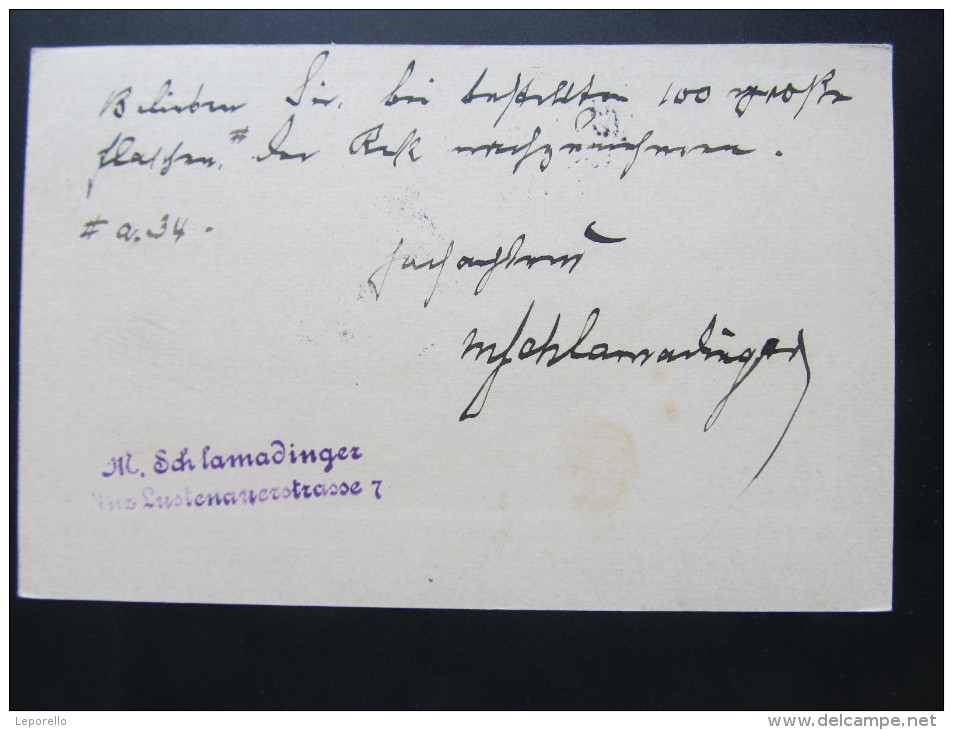 Belieben Sie, bei bestellten 100 große
Flaschen,# den Rest nachzunehmen.
# a. 34.
Hochachtend
MSchlamadinger
M. Schlamadinger
Linz Lustenauerstrasse 7
Leporello
www.delcampe.net